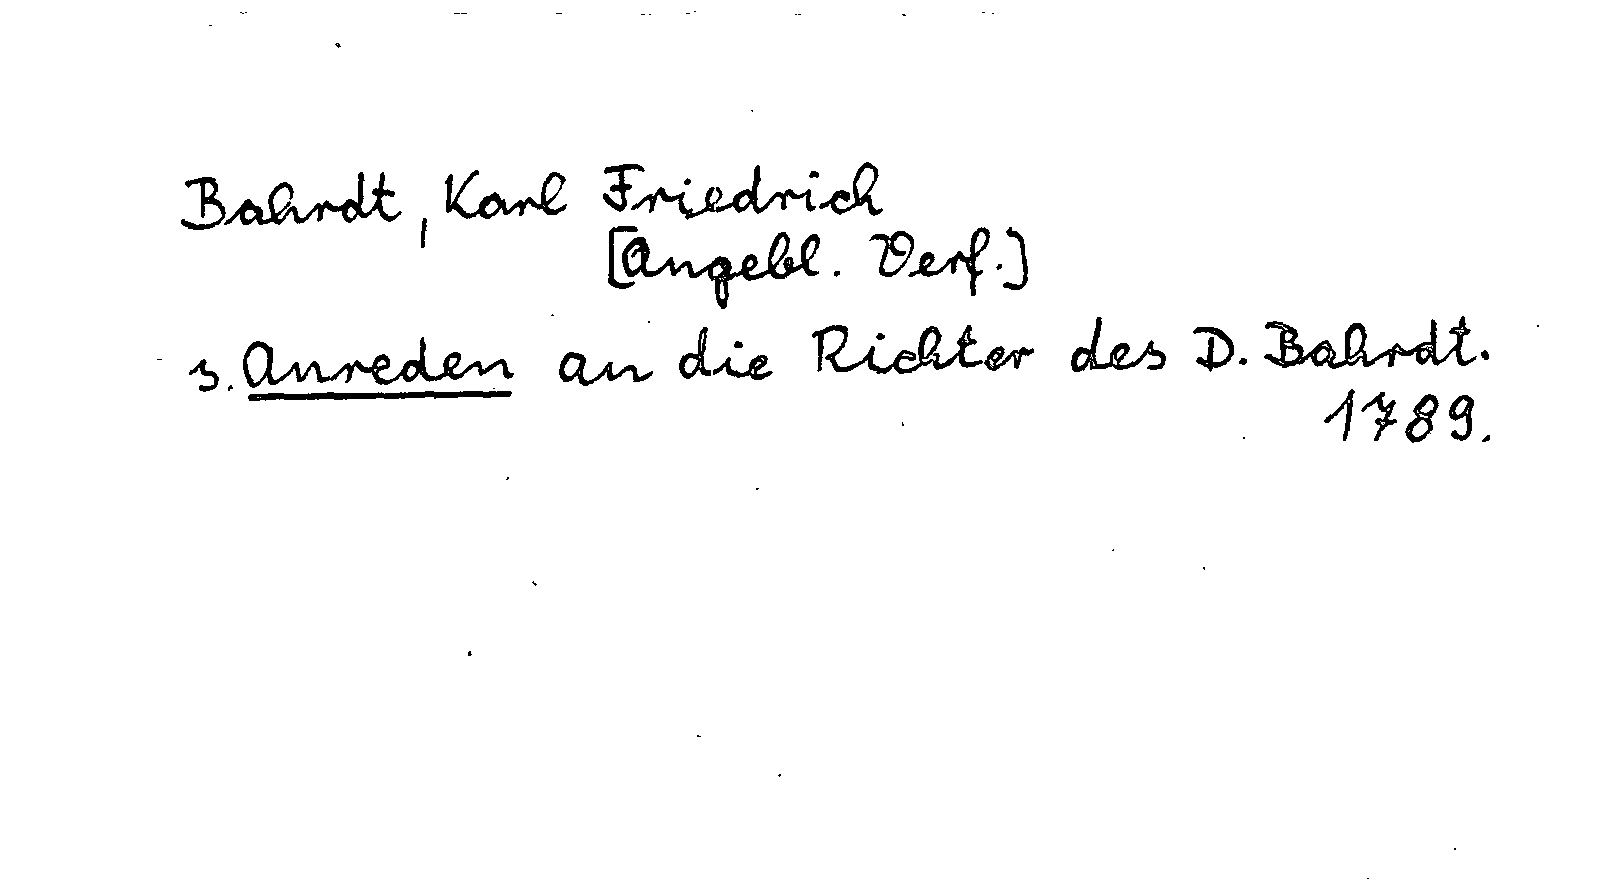 Bahrdt, Karl Friedrich
[Angebl. Verf.]
s. Anreden an die Richter des D. Bahrdt.
1789.